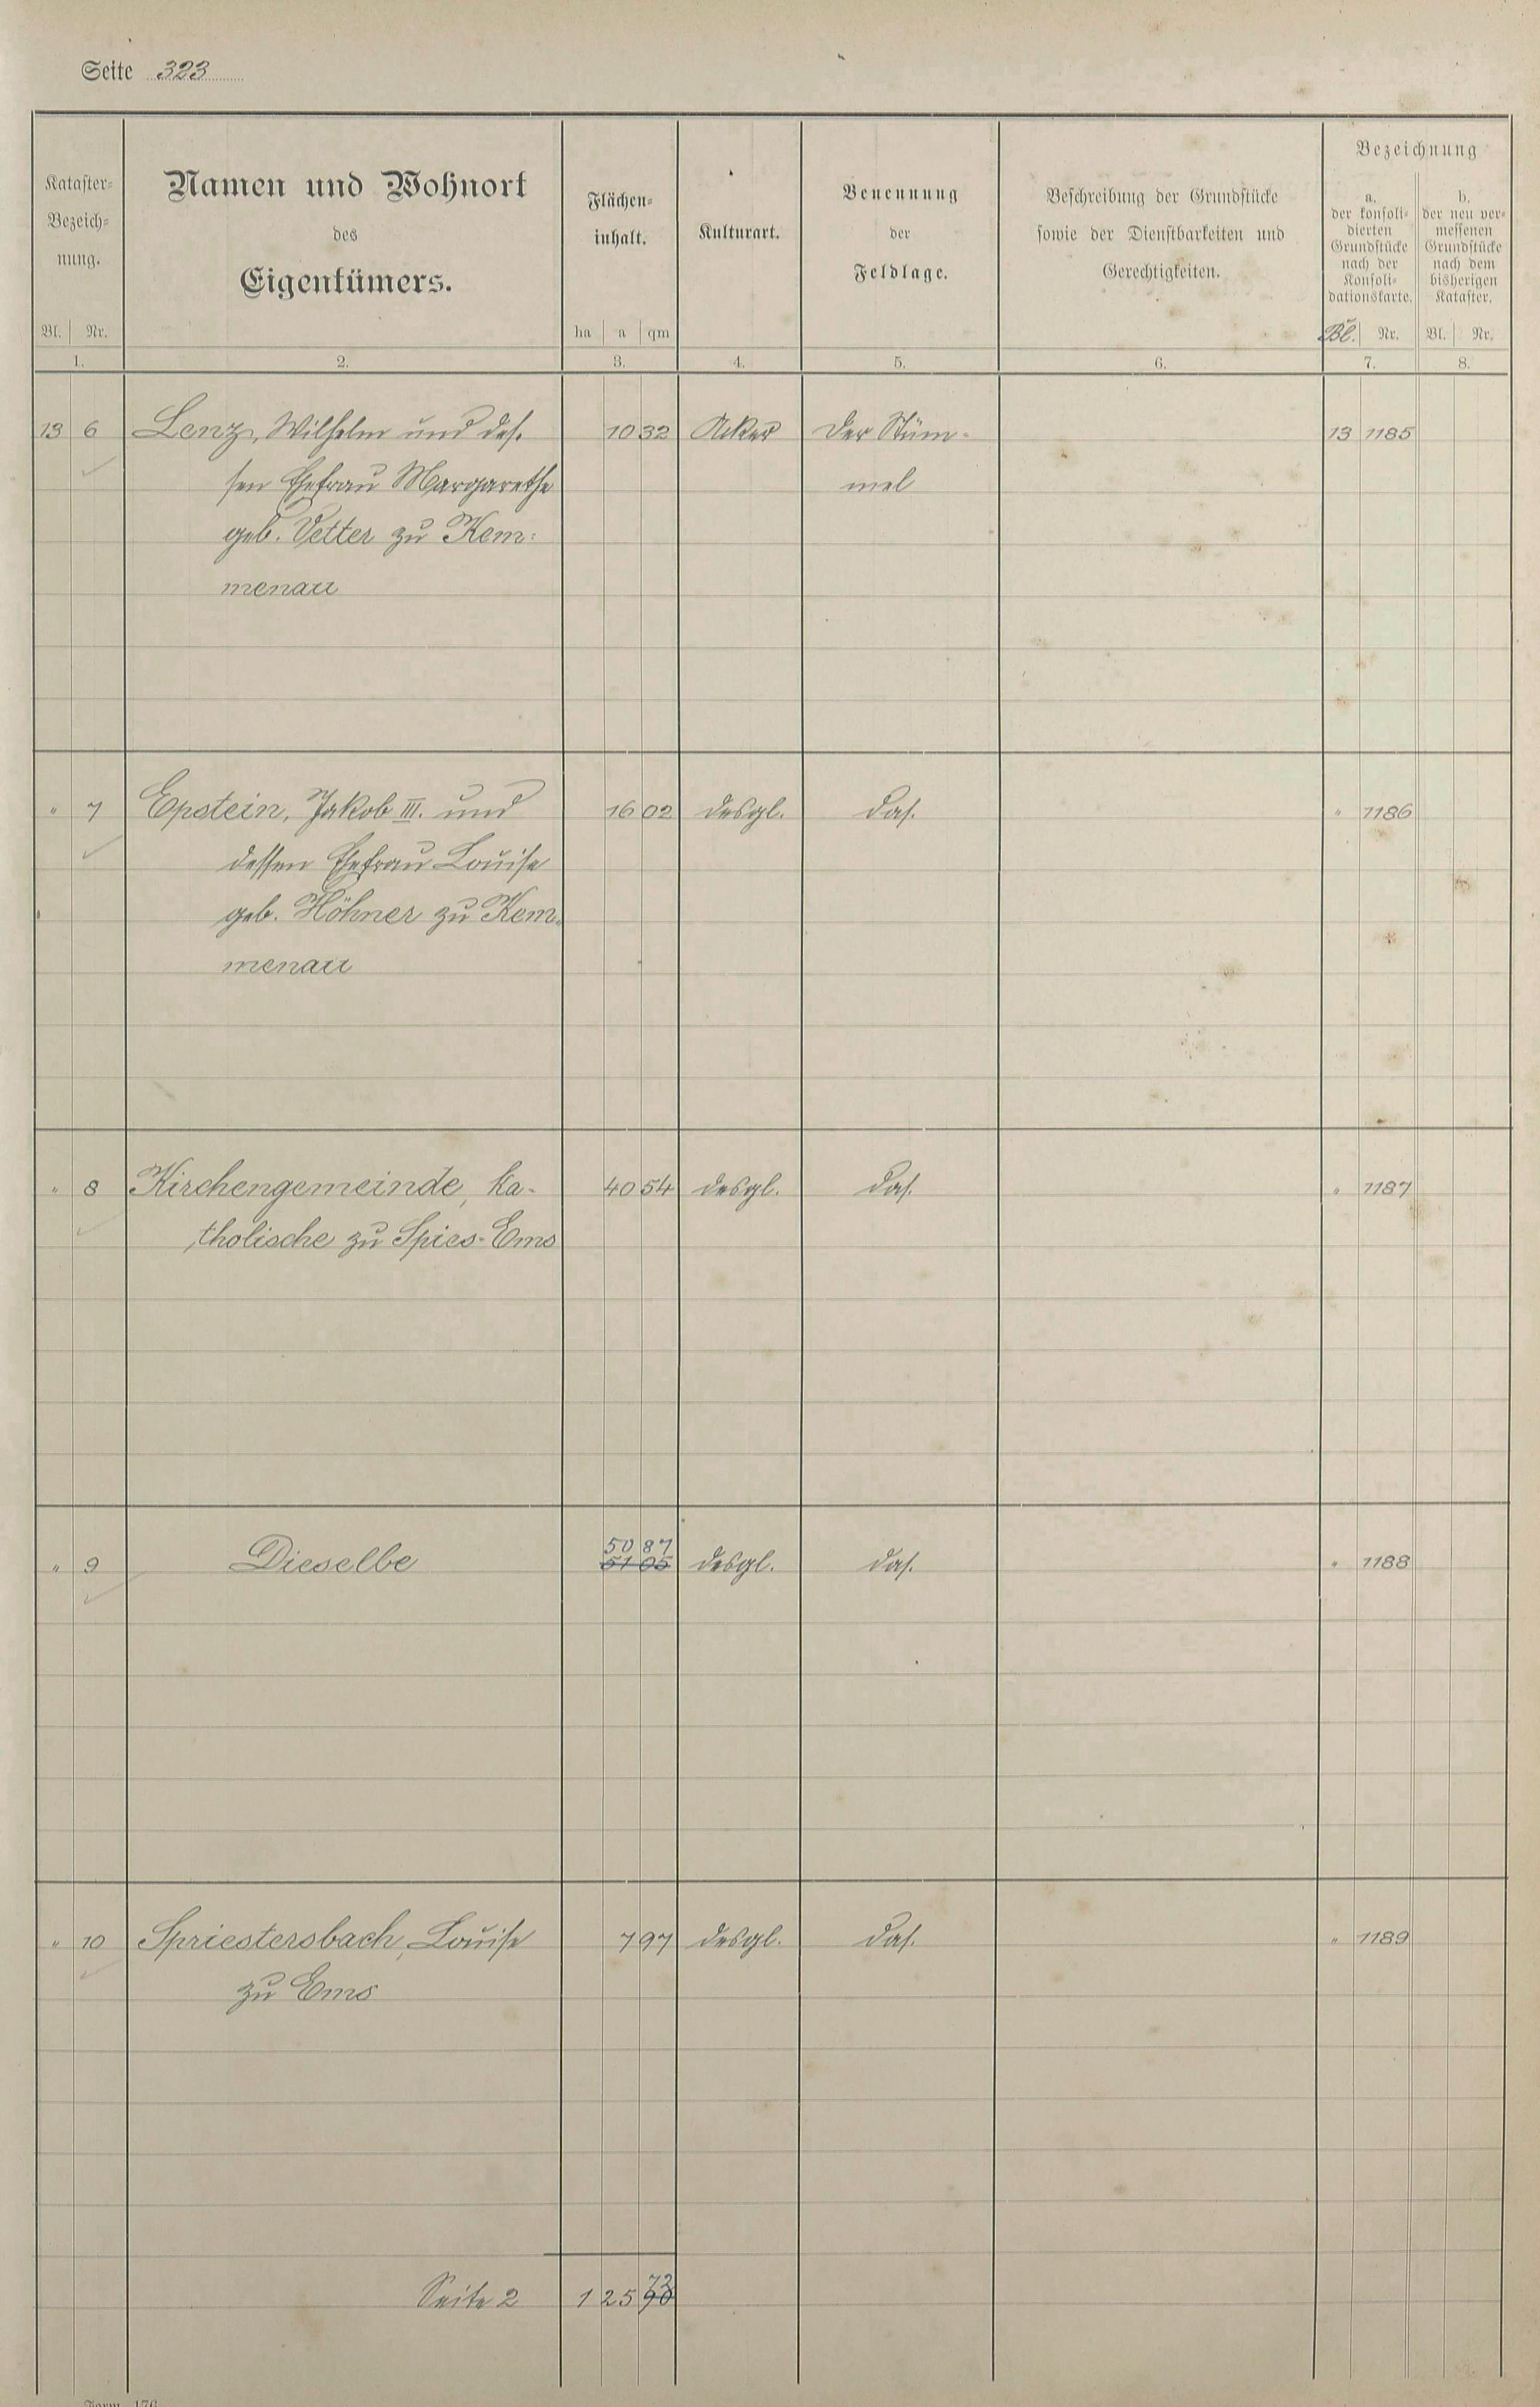 Seite 323
Kataster-
Bezeich-
nung.
Bl. Nr.
1.
Namen und Wohnort
des
Eigentümers.
2.
Flächen-
inhalt.
ha a qm
3.
Kulturart.
4.
Benennung
der
Feldlage.
5.
Beschreibung der Grundstücke
sowie der Dienstbarkeiten und
Gerechtigkeiten.
6.
Bezeichnung
a.
der konsoli-
dierten
Grundstücke
nach der
Konsoli-
dationskarte.
Bl. Nr.
7.
b.
der neu ver-
messenen
Grundstücke
nach dem
bisherigen
Kataster.
Bl. Nr.
8.
13 6 Lenz, Wilhelm und des- 10 32 Acker Der Stüm- 13 1185
sen Ehefrau Margarethe mel
geb. Vetter zu Kem-
menau
" 7 Epstein, Jakob III. und 16 02 desgl. das. " 1186
dessen Ehefrau Louise
geb. Höhner zu Kem-
menau
" 8 Kirchengemeinde, ka- 40 54 desgl. das. " 1187
tholische zu Spies-Ems
50 87
" 9 Dieselbe 51 05 desgl. das. " 1188
" 10 Spriestersbach, Louise 7 97 desgl. das. " 1189
zu Ems
72
Seite 2 1 25 90
Form. 176